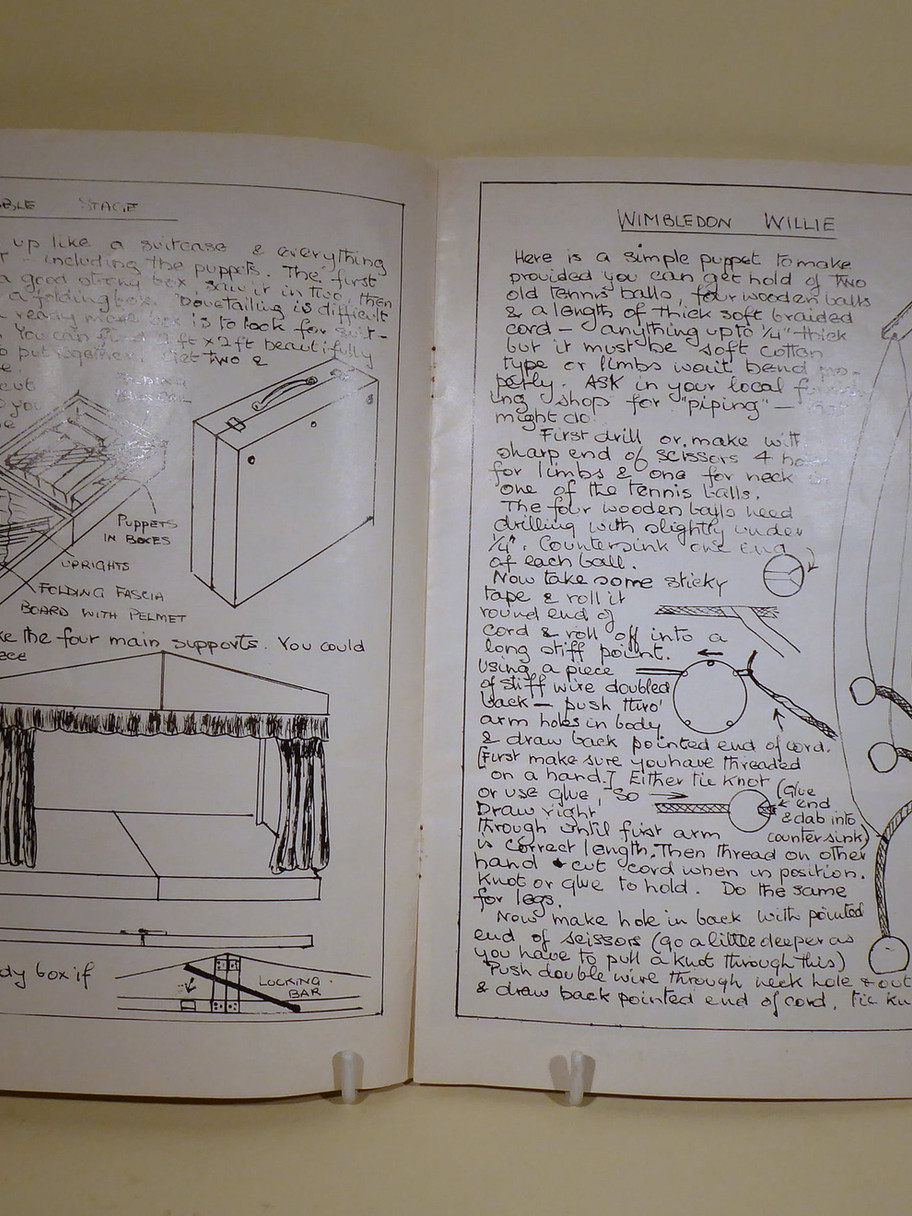 STAGE
up like a suitcase & everything
including the puppets. The first
a good strong box, saw it in two, then
a folding box. Dovetailing is difficult
ready made box is to look for suit-
You can find 2ft x 2ft beautifully
put together. Get two &
cut
you
PUPPETS
IN BOXES
UPRIGHTS
FOLDING FASCIA
BOARD WITH PELMET
the four main supports. You could
dy box if
LOCKING
BAR
WIMBLEDON WILLIE
Here is a simple puppet to make
provided you can get hold of two
old tennis balls, four wooden balls
& a length of thick soft braided
cord – anything up to ¼" thick
but it must be soft cotton
type or limbs wont bend pro-
perly. ASK in your local
ing shop for "piping" –
might do.
First drill or make with
sharp end of scissors 4
for limbs & one for neck
one of the tennis balls.
The four wooden balls need
drilling with slightly under
¼". Countersink one end
of each ball.
Now take some sticky
tape & roll it
round end of
cord & roll off into a
long stiff point.
Using a piece
of stiff wire doubled
back – push thro'
arm holes in body
& draw back pointed end of cord.
[First make sure you have threaded
on a hand.] Either tie knot
or use glue, so
(Glue
end
& dab into
countersink)
Draw right
through until first arm
is correct length. Then thread on other
hand & cut cord when in position.
Knot or glue to hold. Do the same
for legs.
Now make hole in back with pointed
end of scissors (go a little deeper as
you have to pull a knot through this)
Push double wire through neck hole & out
& draw back pointed end of cord, tie